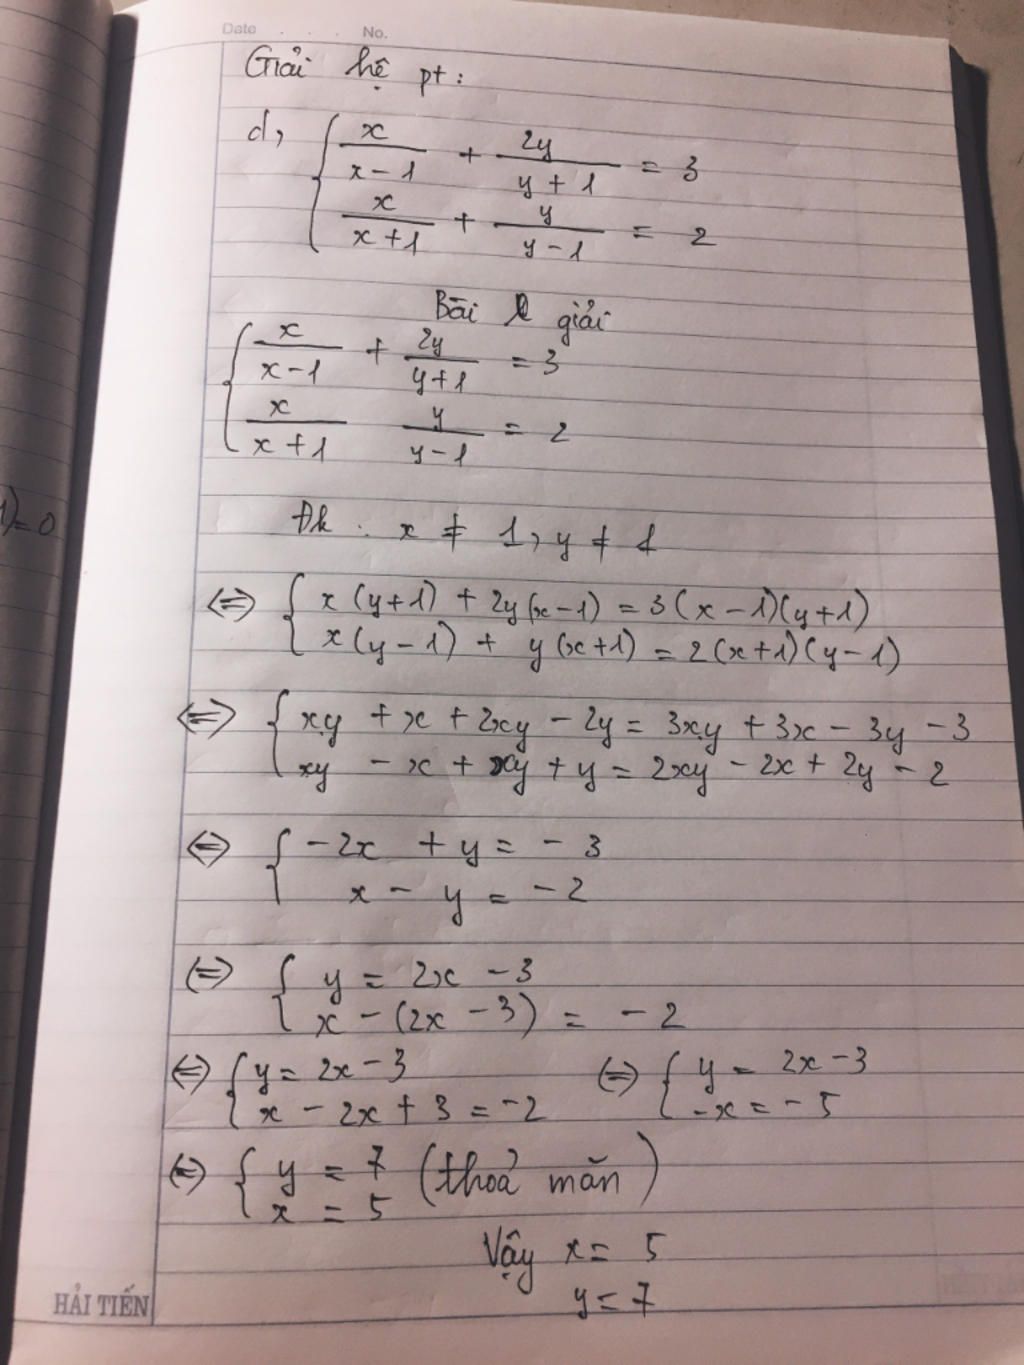 Date . . . No.
Giải hệ pt:
d, { x/(x-1) + 2y/(y+1) = 3
x/(x+1) + y/(y-1) = 2
Bài giải
{ x/(x-1) + 2y/(y+1) = 3
x/(x+1) y/(y-1) = 2
1)=0
Đk : x ≠ 1, y ≠ 1
<=> { x(y+1) + 2y(x-1) = 3(x-1)(y+1)
x(y-1) + y(x+1) = 2(x+1)(y-1)
<=> { xy + x + 2xy - 2y = 3xy + 3x - 3y - 3
xy - x + xy + y = 2xy - 2x + 2y - 2
<=> { -2x + y = -3
x - y = -2
(=) { y = 2x - 3
x - (2x - 3) = -2
<=> { y = 2x - 3 (=) { y = 2x - 3
x - 2x + 3 = -2 -x = -5
<=> { y = 7 (thoả mãn)
x = 5
Vậy x = 5
y = 7
HẢI TIẾN